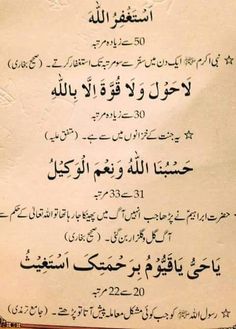 اَسْتَغْفِرُ اللّٰهَ
50 سے زیادہ مرتبہ
☆ نبی اکرم ﷺ ایک دن میں ستر سے سو مرتبہ تک استغفار کرتے۔ (صحیح بخاری)
لَاحَوْلَ وَلَا قُوَّةَ اِلَّا بِاللّٰهِ
30 سے زیادہ مرتبہ
☆ یہ جنت کے خزانوں میں سے ہے۔ (متفق علیہ)
حَسْبُنَا اللّٰهُ وَنِعْمَ الْوَكِيْلُ
31 سے 33 مرتبہ
☆ حضرت ابراہیمؑ نے پڑھا جب انہیں آگ میں پھینکا جا رہا تھا تو اللہ تعالیٰ کے حکم سے
آگ گل وگلزار بن گئی۔ (صحیح بخاری)
يَاحَيُّ يَاقَيُّوْمُ بِرَحْمَتِكَ اَسْتَغِيْثُ
20 سے 22 مرتبہ
☆ رسول اللہ ﷺ کو جب کوئی مشکل معاملہ پیش آتا تو پڑھتے۔ (جامع ترمذی)